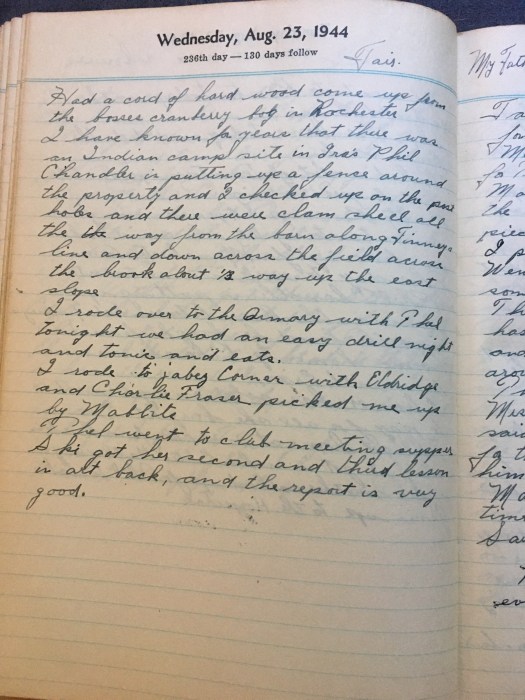 Wednesday, Aug. 23, 1944
236th day — 130 days follow
Fair.
Had a cord of hard wood come up from
the bosses cranberry bog in Rochester
I have known for years that there was
an Indian camp site in Ira's Phil
Chandler is putting up a fence around
the property and I checked up on the post
holes and there were clam shell all
the the way from the barn along Finneys
line and down across the field across
the brook about ½ way up the east
slope
I rode over to the Armory with Phal
tonight we had an easy drill night
and tonic and eats.
I rode to jabez Corner with Eldridge
and Charlie Fraser picked me up
by
Phel went to club meeting supper
Ski got her second and third lesson
in art back, and the report is very
good.
My Fath